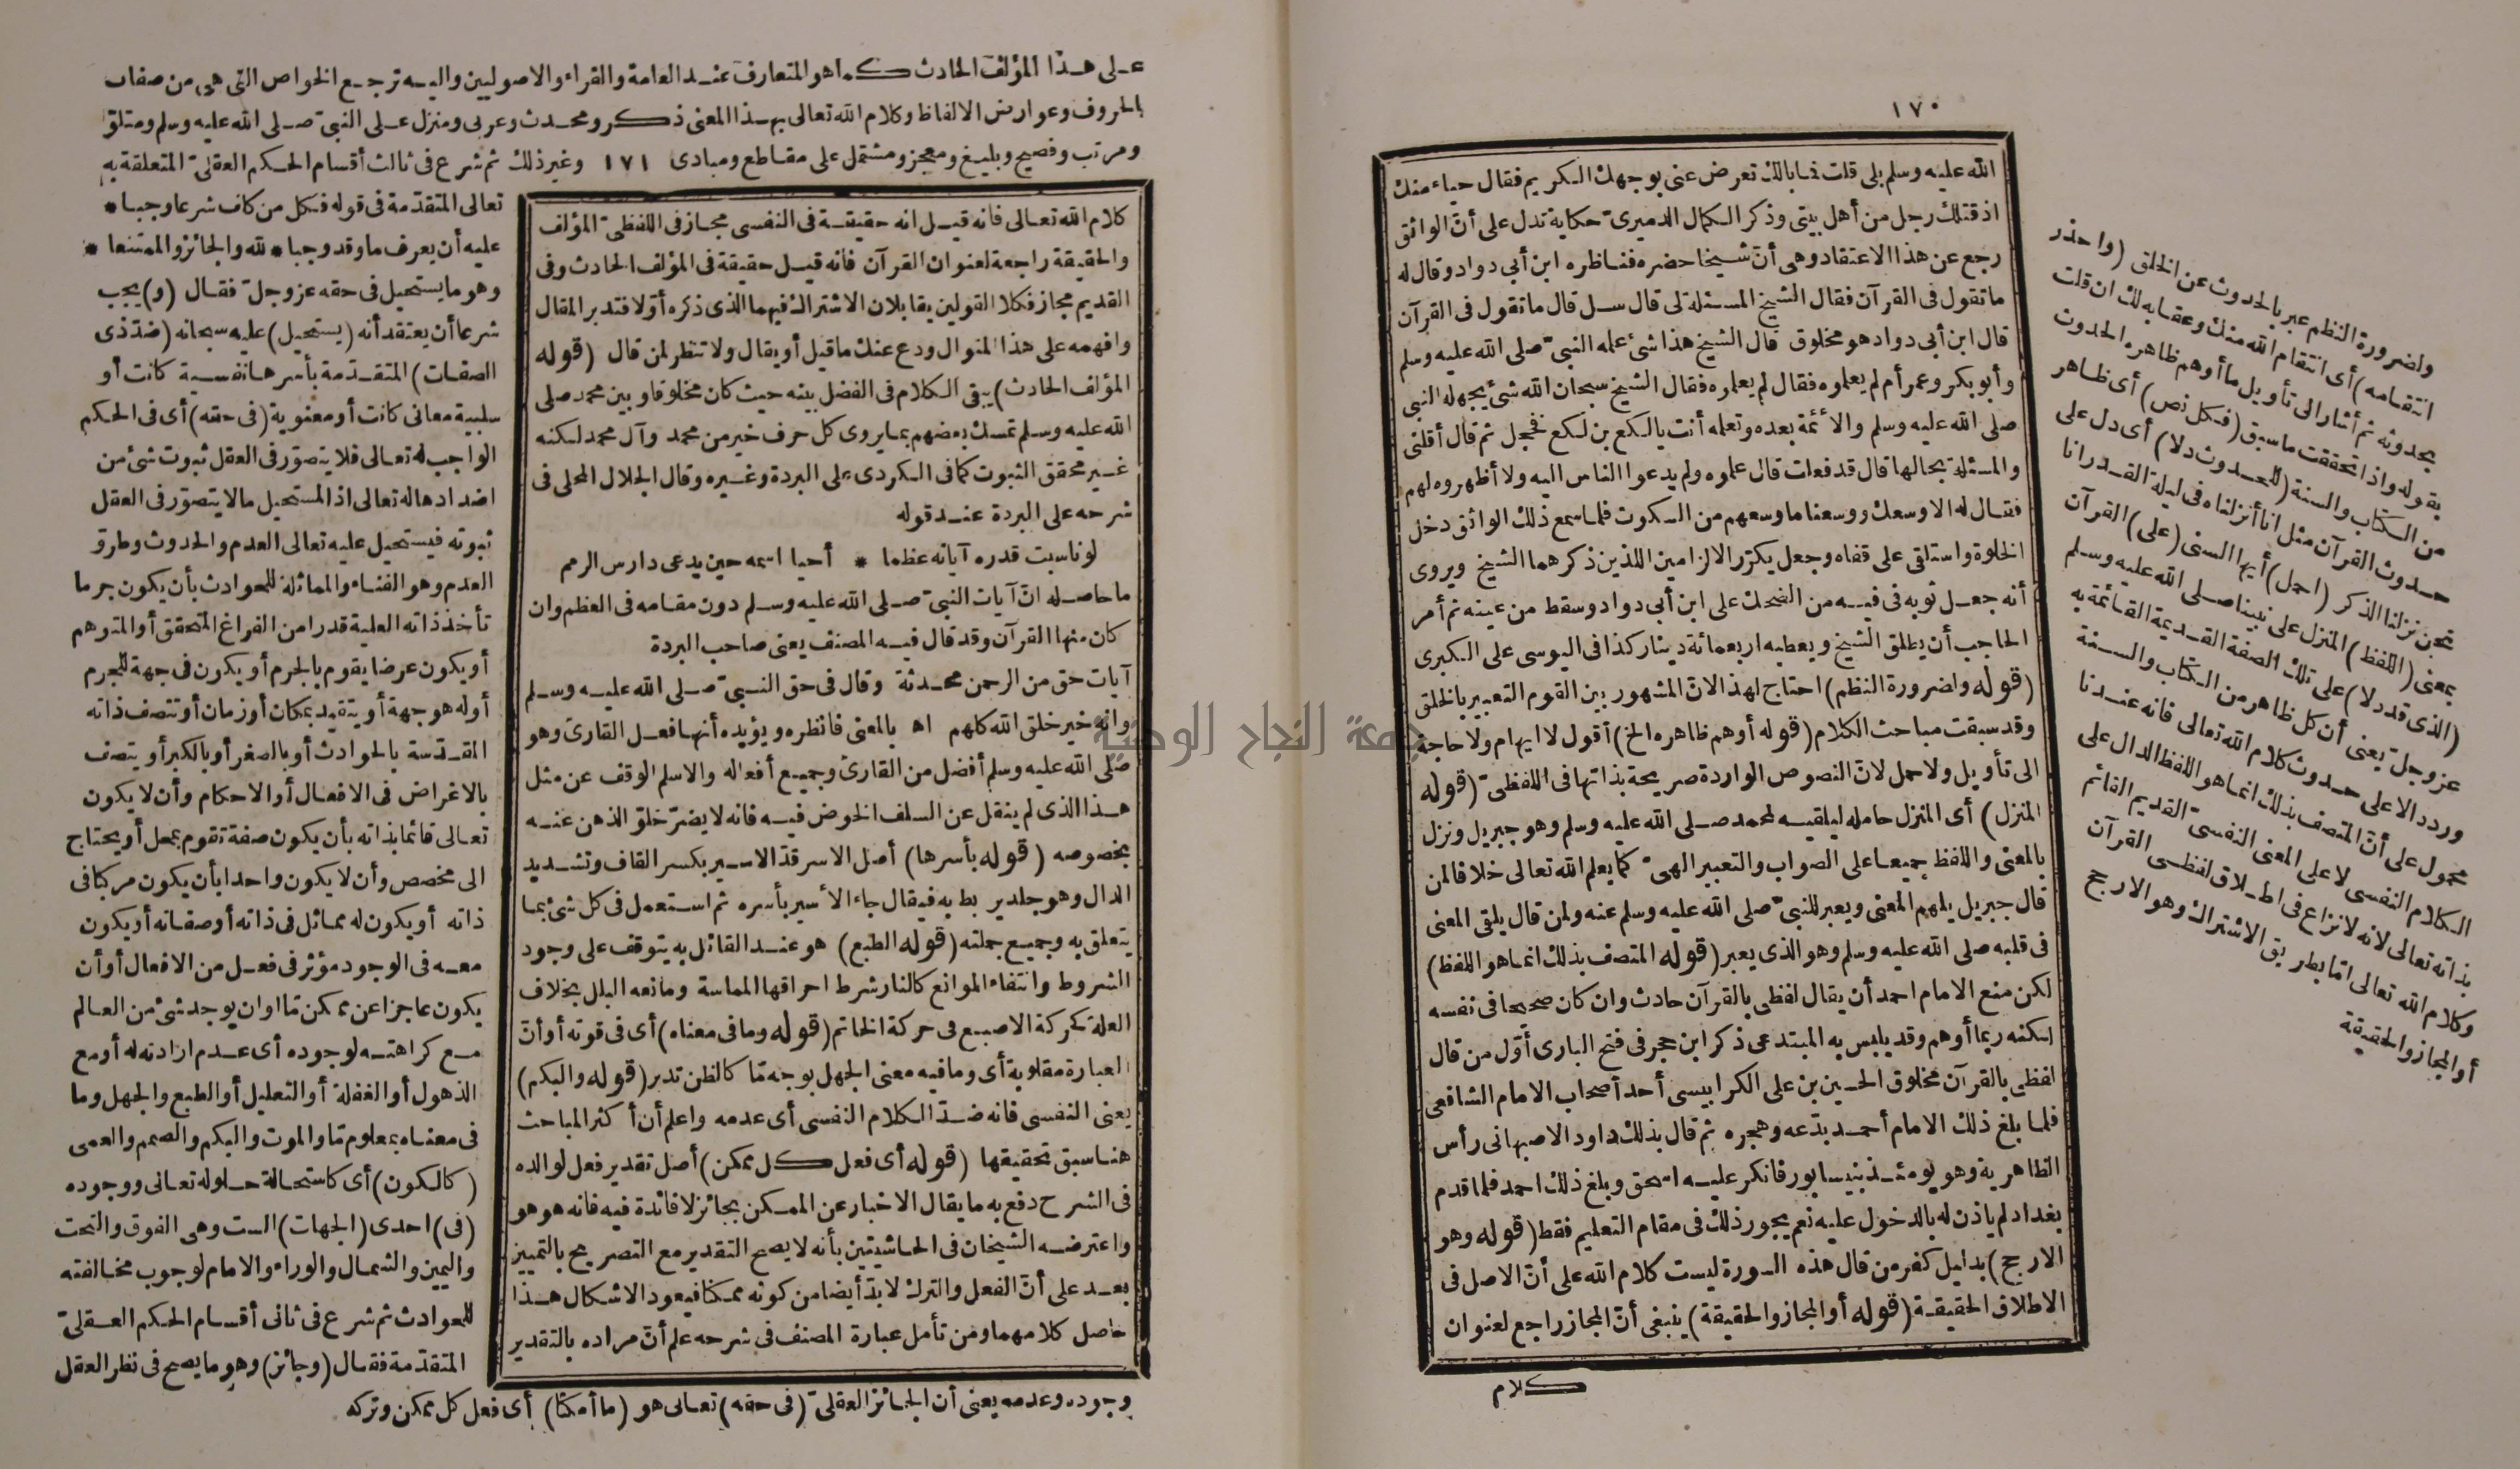 ١٧٠
الله عليه وسلم بلى قلت فما بالك تعرض عنى بوجهك الكريم فقال حياء منك
اذ قتلك رجل من أهل بيتى وذكر الكمال الدميرى حكاية تدل على أن الواثق
رجع عن هذا الاعتقاد وهى أن شيخا حضره فناظره ابن أبي دواد وقال له
ما تقول فى القرآن فقال الشيخ المسئلة لى قال سل قال ما تقول فى القرآن
قال ابن أبى دواد هو مخلوق قال الشيخ هذا شئ علمه النبى صلى الله عليه وسلم
وأبو بكر وعمر أم لم يعلموه فقال لم يعلموه فقال الشيخ سبحان الله شئ يجهله النبى
صلى الله عليه وسلم والأئمة بعده وتعلمه أنت يالكع بن لكع فخجل ثم قال أقلنى
والمسئلة بحالها قال قد فعلت قال علموه ولم يدعوا الناس اليه ولا أظهروه لهم
فقال له الاوسعك ووسعنا ما وسعهم من السكوت فلما سمع ذلك الواثق دخل
الخلوة واستلقى على قفاه وجعل يكرر الالزامين اللذين ذكرهما الشيخ ويروى
أنه جعل ثوبه فى فيه من الضحك على ابن أبى دواد وسقط من عينه ثم أمر
الحاجب أن يطلق الشيخ ويعطيه اربعمائة دينار كذا فى اليوسى على الكبرى
(قوله ولضرورة النظم) احتاج لهذا لان المشهور بين القوم التعبير بالخلق
وقد سبقت مباحث الكلام (قوله أوهم ظاهره الخ) أقول لا ايهام ولا حاجة
الى تأويل ولا حمل لان النصوص الواردة صريحة بذاتها فى اللفظى (قوله
المنزل) أى المنزل حامله ليلقيه لمحمد صلى الله عليه وسلم وهو جبريل ونزل
بالمعنى واللفظ جميعا على الصواب والتعبير الهى كما يعلم الله تعالى خلافا لمن
قال جبريل يلهم المعنى ويعبر للنبى صلى الله عليه وسلم عنه ولمن قال يلقى المعنى
فى قلبه صلى الله عليه وسلم وهو الذى يعبر (قوله المتصف بذلك انما هو اللفظ)
لكن منع الامام احمد أن يقال لفظى بالقرآن حادث وان كان صحيحا فى نفسه
لكنه ربما أوهم وقد يلبس به المبتدعى ذكر ابن حجر فى فتح البارى أول من قال
لفظى بالقرآن مخلوق الحسين بن على الكرابيسى أحد أصحاب الامام الشافعى
فلما بلغ ذلك الامام أحمد بدعه وهجره ثم قال بذلك داود الاصبهانى رأس
الظاهرية وهو يومئذ بنيسابور فانكر عليه اسحق وبلغ ذلك احمد فلما قدم
بغداد لم ياذن له بالدخول عليه نعم يجوز ذلك فى مقام التعليم فقط (قوله وهو
الارجح) بدليل كفر من قال هذه السورة ليست كلام الله على أن الاصل فى
الاطلاق الحقيقة (قوله أو المجاز والحقيقة) ينبغى أن المجاز راجع لعنوان
كلام
ولضرورة النظم عبر بالحدوث عن الخلق (واحذر
انتقامه) أى انتقام الله منك وعقابه لك ان قلت
بحدوثه ثم أشار الى تأويل ما أوهم ظاهره الحدوث
بقوله واذا تحققت ما سبق (فكل نص) أى ظاهر
من الكتاب والسنة (للحدوث دلا) أى دل على
حدوث القرآن مثل انا أنزلناه فى ليلة القدر انا
نحن نزلنا الذكر (احمل) أيها السنى (على) القرآن
بمعنى (اللفظ) المنزل على نبينا صلى الله عليه وسلم
(الذى قد دلا) على تلك الصفة القديمة القائمة به
عز وجل يعنى أن كل ظاهر من الكتاب والسنة
ورد دالا على حدوث كلام الله تعالى فانه عندنا
محمول على أن المتصف بذلك انما هو اللفظ الدال على
الكلام النفسى لا على المعنى النفسى القديم القائم
بذاته تعالى لانه لا نزاع فى اطلاق لفظى القرآن
وكلام الله تعالى اما بطريق الاشتراك وهو الارجح
أو المجاز والحقيقة
على هذا المؤلف الحادث كما هو المتعارف عند العامة والقراء والاصوليين واليه ترجع الخواص التى هى من صفات
الحروف وعوارض الالفاظ وكلام الله تعالى بهذا المعنى ذكر ومحدث وعربى ومنزل على النبى صلى الله عليه وسلم ومتلو
ومرتب وفصيح وبليغ ومعجز ومشتمل على مقاطع ومبادى ١٧١ وغير ذلك ثم شرع فى ثالث أقسام الحكم العقلى المتعلقة به
كلام الله تعالى فانه قيل انه حقيقة فى النفسى مجاز فى اللفظى المؤلف
والحقيقة راجعة لعنوان القرآن فانه قيل حقيقة فى المؤلف الحادث وفى
القديم مجاز فكلا القولين يقابلان الاشتراك فيهما الذى ذكره أولا فتدبر المقال
وافهمه على هذا المنوال ودع عنك ما قيل أو يقال ولا تنظر لمن قال (قوله
المؤلف الحادث) يبقى الكلام فى الفضل بينه حيث كان مخلوقا وبين محمد صلى
الله عليه وسلم تمسك بعضهم بما يروى كل حرف خير من محمد وآل محمد لكنه
غير محقق الثبوت كما فى الكردى على البردة وغيره وقال الجلال المحلى فى
شرحه على البردة عند قوله
لو ناسبت قدره آياته عظما * أحيا اسمه حين يدعى دارس الرمم
ما حاصله ان آيات النبى صلى الله عليه وسلم دون مقامه فى العظم وان
كان منها القرآن وقد قال فيه المصنف يعنى صاحب البردة
آيات حق من الرحمن محدثة وقال فى حق النبى صلى الله عليه وسلم
وانه خير خلق الله كلهم اه بالمعنى فانظره ويؤيده أنها فعل القارئ وهو
صلى الله عليه وسلم أفضل من القارئ وجميع أفعاله والاسلم الوقف عن مثل
هذا الذى لم ينقل عن السلف الخوض فيه فانه لا يضر خلو الذهن عنه
بخصوصه (قوله بأسرها) أصل الاسر قد الاسير بكسر القاف وتشديد
الدال وهو جلد يربط به فيقال جاء الأسير بأسره ثم استعمل فى كل شئ بما
يتعلق به وجميع جملته (قوله الطبع) هو عند القائل به يتوقف على وجود
الشروط وانتفاء الموانع كالنار شرط احراقها المماسة ومانعه البلل بخلاف
العلة كحركة الاصبع فى حركة الخاتم (قوله وما فى معناه) أى فى قوته أو أن
العبارة مقلوبة أى وما فيه معنى الجهل بوجه ما كالظن تدبر (قوله والبكم)
يعنى النفسى فانه ضد الكلام النفسى أى عدمه واعلم أن أكثر المباحث
هنا سبق تحقيقها (قوله أى فعل كل ممكن) أصل تقدير فعل لوالده
فى الشرح دفع به ما يقال الاخبار عن الممكن بجائز لا فائدة فيه فانه هو هو
واعترضه الشيخان فى الحاشيتين بأنه لا يصح التقدير مع التصريح بالتمييز
بعد على أن الفعل والترك لابد أيضا من كونه ممكنا فيعود الاشكال هذا
حاصل كلامهما ومن تأمل عبارة المصنف فى شرحه علم أن مراده بالتقدير
تعالى المتقدمة فى قوله فكل من كلف شرعا وجبا *
عليه أن يعرف ما قد وجبا * لله والجائز والممتنعا *
وهو ما يستحيل فى حقه عز وجل فقال (و) يجب
شرعا أن يعتقد أنه (يستحيل) عليه سبحانه (ضد ذى
الصفات) المتقدمة بأسرها نفسية كانت أو
سلبية معانى كانت أو معنوية (فى حقه) أى فى الحكم
الواجب له تعالى فلا يتصور فى العقل ثبوت شئ من
اضدادها له تعالى اذ المستحيل ما لا يتصور فى العقل
ثبوته فيستحيل عليه تعالى العدم والحدوث وطرو
العدم وهو الفناء والمماثلة للحوادث بأن يكون جرما
تأخذ ذاته العلية قدرا من الفراغ المتحقق أو المتوهم
أو يكون عرضا يقوم بالجرم أو يكون فى جهة للجرم
أو له هو جهة أو يتقيد بمكان أو زمان أو تتصف ذاته
المقدسة بالحوادث أو بالصغر أو بالكبر أو يتصف
بالاغراض فى الافعال أو الاحكام وأن لا يكون
تعالى قائما بذاته بأن يكون صفة تقوم بمحل أو يحتاج
الى مخصص وأن لا يكون واحدا بأن يكون مركبا فى
ذاته أو يكون له مماثل فى ذاته أو صفاته أو يكون
معه فى الوجود مؤثر فى فعل من الافعال أو أن
يكون عاجزا عن ممكن ما او ان يوجد شئ من العالم
مع كراهته لوجوده أى عدم ارادته له أو مع
الذهول أو الغفلة أو التعليل أو الطبع والجهل وما
فى معناه بمعلوم ما والموت والبكم والصمم والعمى
(كالكون) أى كاستحالة حلوله تعالى ووجوده
(فى) احدى (الجهات) الست وهى الفوق والتحت
واليمين والشمال والوراء والامام لوجوب مخالفته
للحوادث ثم شرع فى ثانى أقسام الحكم العقلى
المتقدمة فقال (وجائز) وهو ما يصح فى نظر العقل
وجوده وعدمه يعنى أن الجائز العقلى (فى حقه) تعالى هو (ما أمكنا) أى فعل كل ممكن وتركه
جامعة النجاح الوطنية